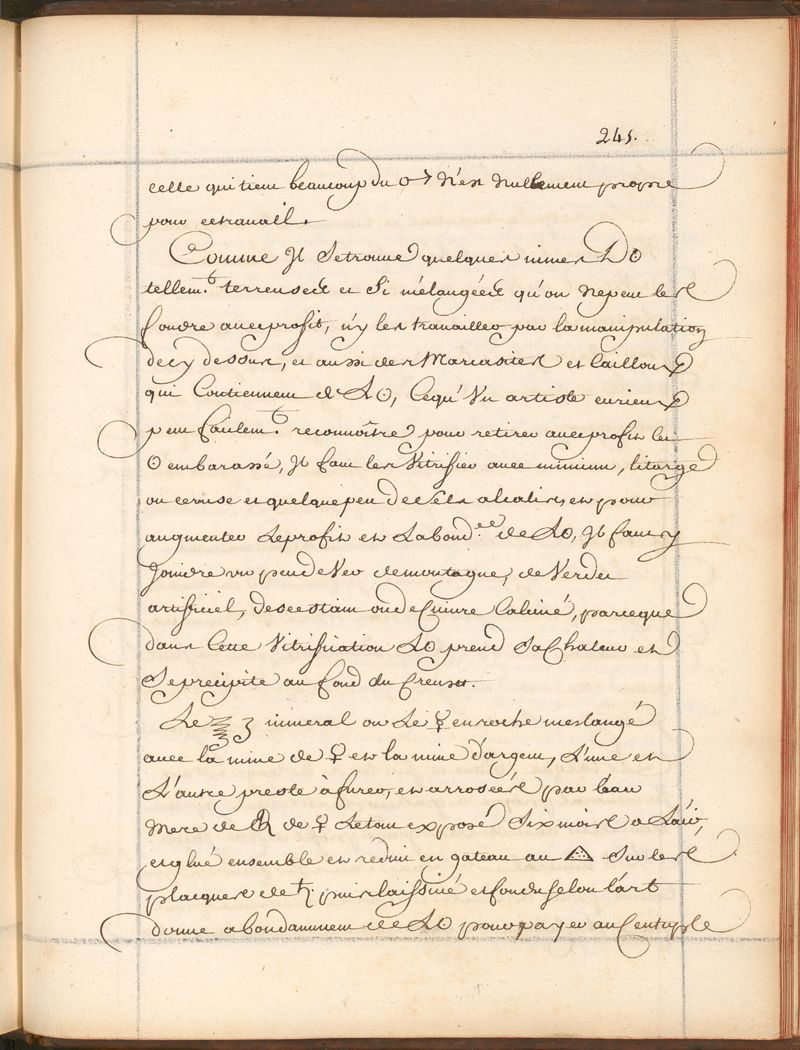 245.
celle qui tient beaucoup du ♂ n'est nullement propre
pour ce travail.
Comme Jl Se trouve quelques mines D☉
tellem.t terreuses et Si mélangées qu'on ne peut les
fondre avec profit, n'y les travailler par la manipulation
de cy dessus, et aussi des Marcasites et Cailloux
qui Contiennent de L☉, Ce qu'Un artiste curieux
peut facilem.t reconnoître pour retirer avec profit
☉ embarassé, Jl faut les Vitrifier avec minium, litarge
ou ceruse et quelque peu de Sels alcalis, et pour
augmenter Le profit et Labond.ce de L☉, Jl faut y
Joindre un peu de Ver de montagne, de Verdet
artificiel, de ou de Cuivre Calciné, parceque
dans Cette Vitrification L☉ prend Sa Chaleur et
Se precipite au fond du Creuset.
Le mineral ou Le ☿ en roche meslangé
avec la mine de ♀ et la mine d'argent, L'une et
L'autre preste à fluer, et arrosées par l'eau
Mere de de ♀ Le tout exposé Six mois a L'air,
et glué ensemble et reduit en gateau au Sur les
placques de ♄ puis laissiné et fondu Selon l'art
donne abondamment de L☉ pour payer au Centuple